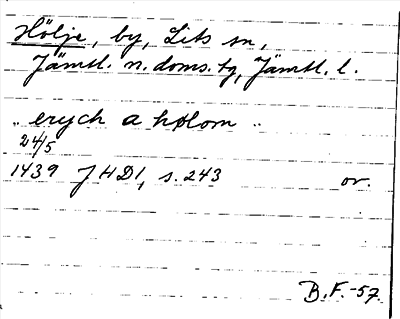 Hölje, by, Lits sn,
Jämtl. n. doms. tg, Jämtl. l.
„ erych a hølom „
24/5
1439 JHD1, s. 243 or.
B.F.-57.